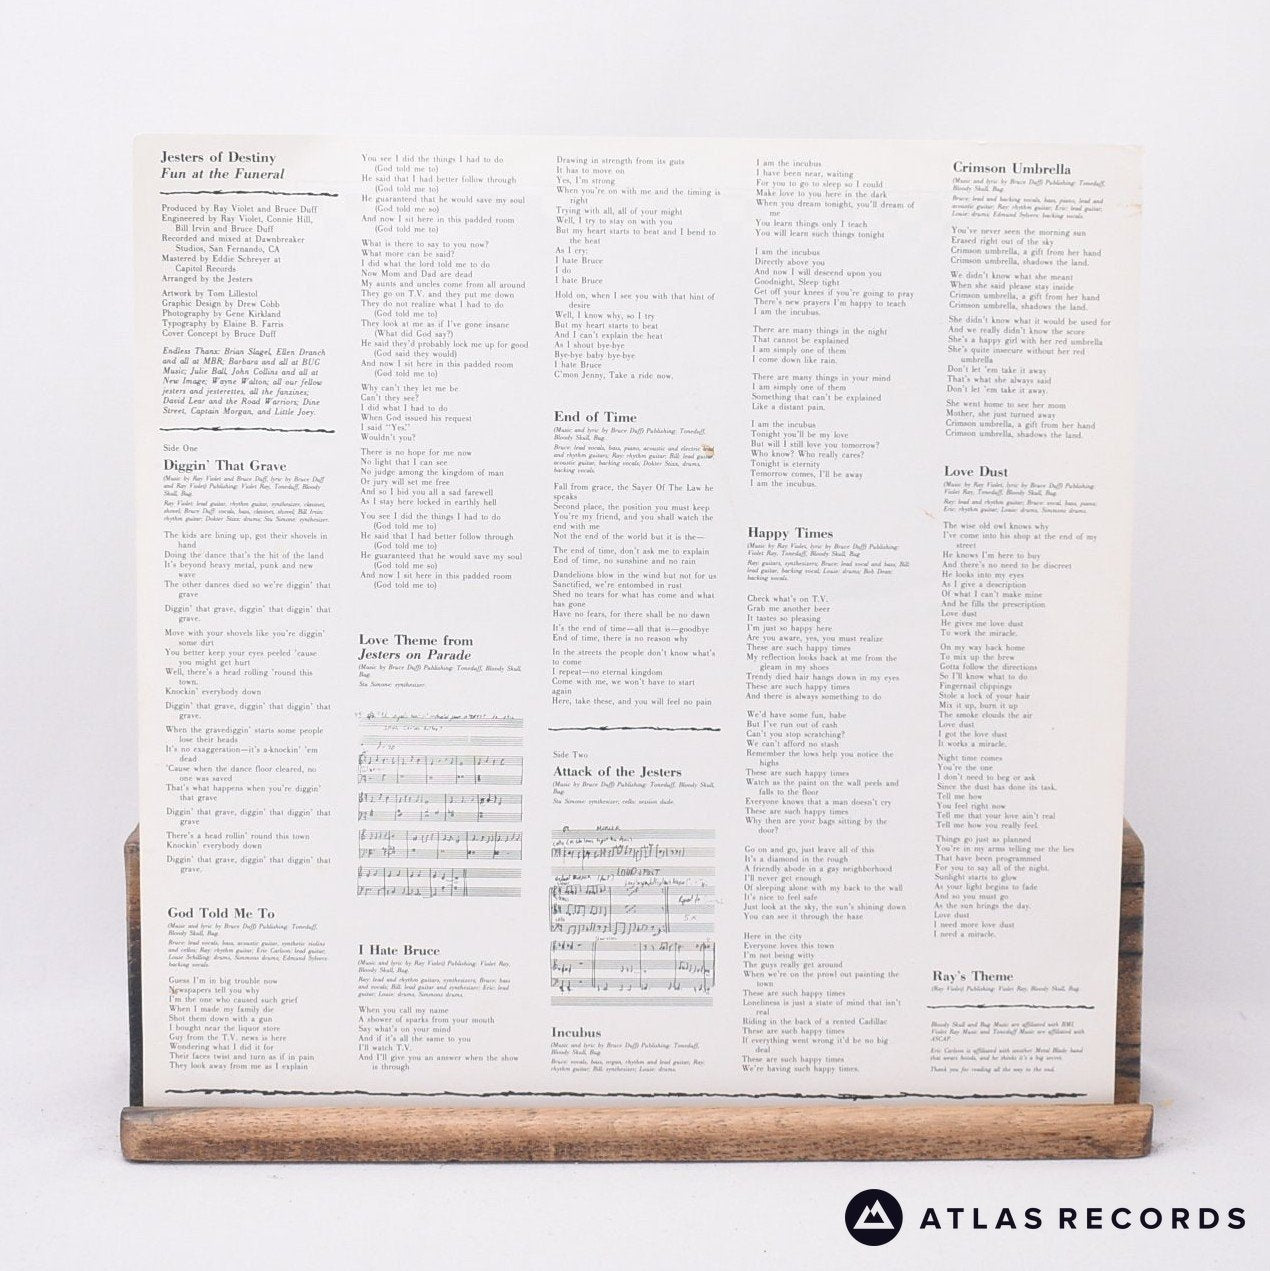 Jesters of Destiny
Fun at the Funeral
Produced by Ray Violet and Bruce Duff
Engineered by Ray Violet, Connie Hill,
Bill Irvin and Bruce Duff
Recorded and mixed at Dawnbreaker
Studios, San Fernando, CA
Mastered by Eddie Schreyer at
Capitol Records
Arranged by the Jesters
Artwork by Tom Lillestol
Graphic Design by Drew Cobb
Photography by Gene Kirkland
Typography by Elaine B. Farris
Cover Concept by Bruce Duff
Endless Thanx: Brian Slagel, Ellen Dranch
and all at MBR; Barbara and all at BUG
Music; Julie Ball, John Collins and all at
New Image; Wayne Walton; all our fellow
jesters and jesterettes, all the fanzines;
David Lear and the Road Warriors; Dine
Street, Captain Morgan, and Little Joey.
Side One
Diggin' That Grave
(Music by Ray Violet and Bruce Duff, lyric by Bruce Duff
and Ray Violet) Publishing: Violet Ray, Toneduff, Bloody
Skull, Bug.
Ray Violet: lead guitar, rhythm guitar, synthesizer, clavinet,
shovel; Bruce Duff: vocals, bass, clavinet, shovel; Bill Irvin:
rhythm guitar; Dokter Stixx: drums; Stu Simone: synthesizer.
The kids are lining up, got their shovels in
hand
Doing the dance that's the hit of the land
It's beyond heavy metal, punk and new
wave
The other dances died so we're diggin' that
grave
Diggin' that grave, diggin' that diggin' that
grave.
Move with your shovels like you're diggin'
some dirt
You better keep your eyes peeled 'cause
you might get hurt
Well, there's a head rolling 'round this
town.
Knockin' everybody down
Diggin' that grave, diggin' that diggin' that
grave.
When the gravediggin' starts some people
lose their heads
It's no exaggeration—it's a-knockin' 'em
dead
'Cause when the dance floor cleared, no
one was saved
That's what happens when you're diggin'
that grave
Diggin' that grave, diggin' that diggin' that
grave
There's a head rollin' round this town
Knockin' everybody down
Diggin' that grave, diggin' that diggin' that
grave.
God Told Me To
(Music and lyric by Bruce Duff) Publishing: Toneduff,
Bloody Skull, Bug.
Bruce: lead vocals, bass, acoustic guitar, synthetic violins
and cellos; Ray: rhythm guitar; Eric Carlson: lead guitar;
Louie Schilling: drums, Simmons drums, Edmund Sylvers:
backing vocals.
Guess I'm in big trouble now
Newspapers tell you why
I'm the one who caused such grief
When I made my family die
Shot them down with a gun
I bought near the liquor store
Guy from the T.V. news is here
Wondering what I did it for
Their faces twist and turn as if in pain
They look away from me as I explain
You see I did the things I had to do
(God told me to)
He said that I had better follow through
(God told me to)
He guaranteed that he would save my soul
(God told me so)
And now I sit here in this padded room
(God told me to)
What is there to say to you now?
What more can be said?
I did what the lord told me to do
Now Mom and Dad are dead
My aunts and uncles come from all around
They go on T.V. and they put me down
They do not realize what I had to do
(God told me to)
They look at me as if I've gone insane
(What did God say?)
He said they'd probably lock me up for good
(God said they would)
And now I sit here in this padded room
(God told me to)
Why can't they let me be
Can't they see?
I did what I had to do
When God issued his request
I said "Yes."
Wouldn't you?
There is no hope for me now
No light that I can see
No judge among the kingdom of man
Or jury will set me free
And so I bid you all a sad farewell
As I stay here locked in earthly hell
You see I did the things I had to do
(God told me to)
He said that I had better follow through
(God told me to)
He guaranteed that he would save my soul
(God told me so)
And now I sit here in this padded room
(God told me to)
Love Theme from
Jesters on Parade
(Music by Bruce Duff) Publishing: Toneduff, Bloody Skull,
Bug.
Stu Simone: synthesizer.
I Hate Bruce
(Music and lyric by Ray Violet) Publishing: Violet Ray,
Bloody Skull, Bug.
Ray: lead and rhythm guitars, synthesizers; Bruce: bass
and vocals; Bill: lead guitar and synthesizer; Eric: lead
guitar; Louie: drums, Simmons drums.
When you call my name
A shower of sparks from your mouth
Say what's on your mind
And if it's all the same to you
I'll watch T.V.
And I'll give you an answer when the show
is through
Drawing in strength from its guts
It has to move on
Yes, I'm strong
When you're on with me and the timing is
right
Trying with all, all of your might
Well, I try to stay on with you
But my heart starts to beat and I bend to
the heat
As I cry:
I hate Bruce
I do
I hate Bruce
Hold on, when I see you with that hint of
desire
Well, I know why, so I try
But my heart starts to beat
And I can't explain the heat
As I shout bye-bye
Bye-bye baby bye-bye
I hate Bruce
C'mon Jenny, Take a ride now.
End of Time
(Music and lyric by Bruce Duff) Publishing: Toneduff,
Bloody Skull, Bug.
Bruce: lead vocals, bass, piano, acoustic and electric lead
and rhythm guitars; Ray: rhythm guitar; Bill: lead guitar,
acoustic guitar, backing vocals; Dokter Stixx, drums,
backing vocals.
Fall from grace, the Saver Of The Law he
speaks
Second place, the position you must keep
You're my friend, and you shall watch the
end with me
Not the end of the world but it is the—
The end of time, don't ask me to explain
End of time, no sunshine and no rain
Dandelions blow in the wind but not for us
Sanctified, we're entombed in rust
Shed no tears for what has come and what
has gone
Have no fears, for there shall be no dawn
It's the end of time—all that is—goodbye
End of time, there is no reason why
In the streets the people don't know what's
to come
I repeat—no eternal kingdom
Come with me, we won't have to start
again
Here, take these, and you will feel no pain
Side Two
Attack of the Jesters
(Music by Bruce Duff) Publishing: Toneduff, Bloody Skull,
Bug.
Stu Simone: synthesizer; cello: session dude.
Incubus
(Music and lyric by Bruce Duff) Publishing: Toneduff,
Bloody Skull, Bug.
Bruce: vocals, bass, organ, rhythm and lead guitar; Ray:
rhythm guitar; Bill: synthesizer; Louie: drums.
I am the incubus
I have been near, waiting
For you to go to sleep so I could
Make love to you here in the dark
When you dream tonight, you'll dream of
me
You learn things only I teach
You will learn such things tonight
I am the incubus
Directly above you
And now I will descend upon you
Goodnight, Sleep tight
Get off your knees if you're going to pray
There's new prayers I'm happy to teach
I am the incubus.
There are many things in the night
That cannot be explained
I am simply one of them
I come down like rain.
There are many things in your mind
I am simply one of them
Something that can't be explained
Like a distant pain.
I am the incubus
Tonight you'll be my love
But will I still love you tomorrow?
Who know? Who really cares?
Tonight is eternity
Tomorrow comes, I'll be away
I am the incubus.
Happy Times
(Music by Ray Violet, lyric by Bruce Duff) Publishing:
Violet Ray, Toneduff, Bloody Skull, Bug.
Ray: guitars, synthesizers; Bruce: lead vocal and bass; Bill
lead guitar, backing vocal; Louie: drums; Bob Dean:
backing vocals.
Check what's on T.V.
Grab me another beer
It tastes so pleasing
I'm just so happy here
Are you aware, yes, you must realize
These are such happy times
My reflection looks back at me from the
gleam in my shoes
Trendy died hair hangs down in my eyes
These are such happy times
And there is always something to do
We'd have some fun, babe
But I've run out of cash
Can't you stop scratching?
We can't afford no stash
Remember the lows help you notice the
highs
These are such happy times
Watch as the paint on the wall peels and
falls to the floor
Everyone knows that a man doesn't cry
These are such happy times
Why then are your bags sitting by the
door?
Go on and go, just leave all of this
It's a diamond in the rough
A friendly abode in a gay neighborhood
I'll never get enough
Of sleeping alone with my back to the wall
It's nice to feel safe
Just look at the sky, the sun's shining down
You can see it through the haze
Here in the city
Everyone loves this town
I'm not being witty
The guys really get around
When we're on the prowl out painting the
town
These are such happy times
Loneliness is just a state of mind that isn't
real
Riding in the back of a rented Cadillac
These are such happy times
If everything went wrong it'd be no big
deal
These are such happy times
We're having such happy times.
Crimson Umbrella
(Music and lyric by Bruce Duff) Publishing: Toneduff,
Bloody Skull, Bug.
Bruce: lead and backing vocals, bass, piano, lead and
acoustic guitar; Ray: rhythm guitar; Eric: lead guitar;
Louie: drums; Edmund Sylvers: backing vocals.
You've never seen the morning sun
Erased right out of the sky
Crimson umbrella, a gift from her hand
Crimson umbrella, shadows the land.
We didn't know what she meant
When she said please stay inside
Crimson umbrella, a gift from her hand
Crimson umbrella, shadows the land.
She didn't know what it would be used for
And we really didn't know the score
She's a happy girl with her red umbrella
She's quite insecure without her red
umbrella
Don't let 'em take it away
That's what she always said
Don't let 'em take it away.
She went home to see her mom
Mother, she just turned away
Crimson umbrella, a gift from her hand
Crimson umbrella, shadows the land.
Love Dust
(Music by Ray Violet, lyric by Bruce Duff) Publishing:
Violet Ray, Toneduff, Bloody Skull, Bug.
Ray: lead and rhythm guitar; Bruce: vocal, bass, piano;
Eric: rhythm guitar; Louie: drums, Simmons drums.
The wise old owl knows why
I've come into his shop at the end of my
street
He knows I'm here to buy
And there's no need to be discreet
He looks into my eyes
As I give a description
Of what I can't make mine
And he fills the prescription
Love dust
He gives me love dust
To work the miracle.
On my way back home
To mix up the brew
Gotta follow the directions
So I'll know what to do
Fingernail clippings
Stole a lock of your hair
Mix it up, burn it up
The smoke clouds the air
Love dust
I got the love dust
It works a miracle.
Night time comes
You're the one
I don't need to beg or ask
Since the dust has done its task.
Tell me how
You feel right now
Tell me that your love ain't real
Tell me how you really feel.
Things go just as planned
You're in my arms telling me the lies
That have been programmed
For you to say all of the night.
Sunlight starts to glow
As your light begins to fade
And so you must go
As the sun brings the day.
Love dust
I need more love dust
I need a miracle.
Ray's Theme
(Ray Violet) Publishing: Violet Ray, Bloody Skull, Bug.
Bloody Skull and Bug Music are affiliated with BMI.
Violet Ray Music and Toneduff Music are affiliated with
ASCAP.
Eric Carlson is affiliated with another Metal Blade band
that wears hoods, and he thinks it's a big secret.
Thank you for reading all the way to the end.
ATLAS RECORDS